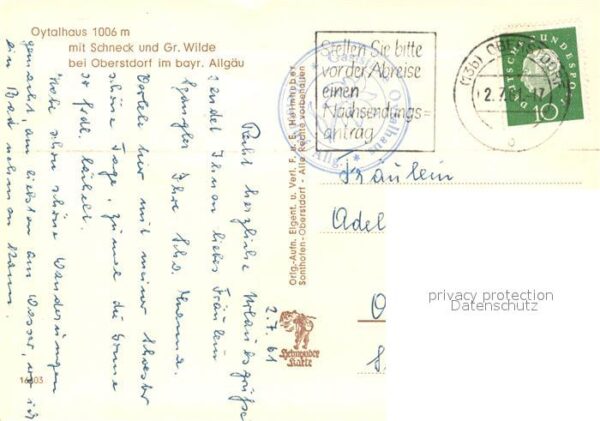 Oytalhaus 1006 m
mit Schneck und Gr. Wilde
bei Oberstdorf im bayr. Allgäu
Stellen Sie bitte
vor der Abreise
einen
Nachsendungs=
antrag
(13b) OBERSTDORF
2.7.61-17
DEUTSCHE BUNDESPOST
10
Oytalhaus
Fräulein
Adel
2.7.61
Recht herzliche Urlaubsgrüße
sendet Ihnen liebes Fräulein
Ihre Schw.
Verlebe hier mit meiner Schwester
schöne Tage, zumal die Sonne
so lächelt.
Habe schon schöne Wanderungen
gemacht, am liebsten am Wasser, wo ich
ein Bad nehmen kann.
Orig.-Aufn. Eigent. u. Verl. F. u. E. Heimhuber
Sonthofen-Oberstdorf - Alle Rechte vorbehalten
Heimhuber
Karte
privacy protection
Datenschutz